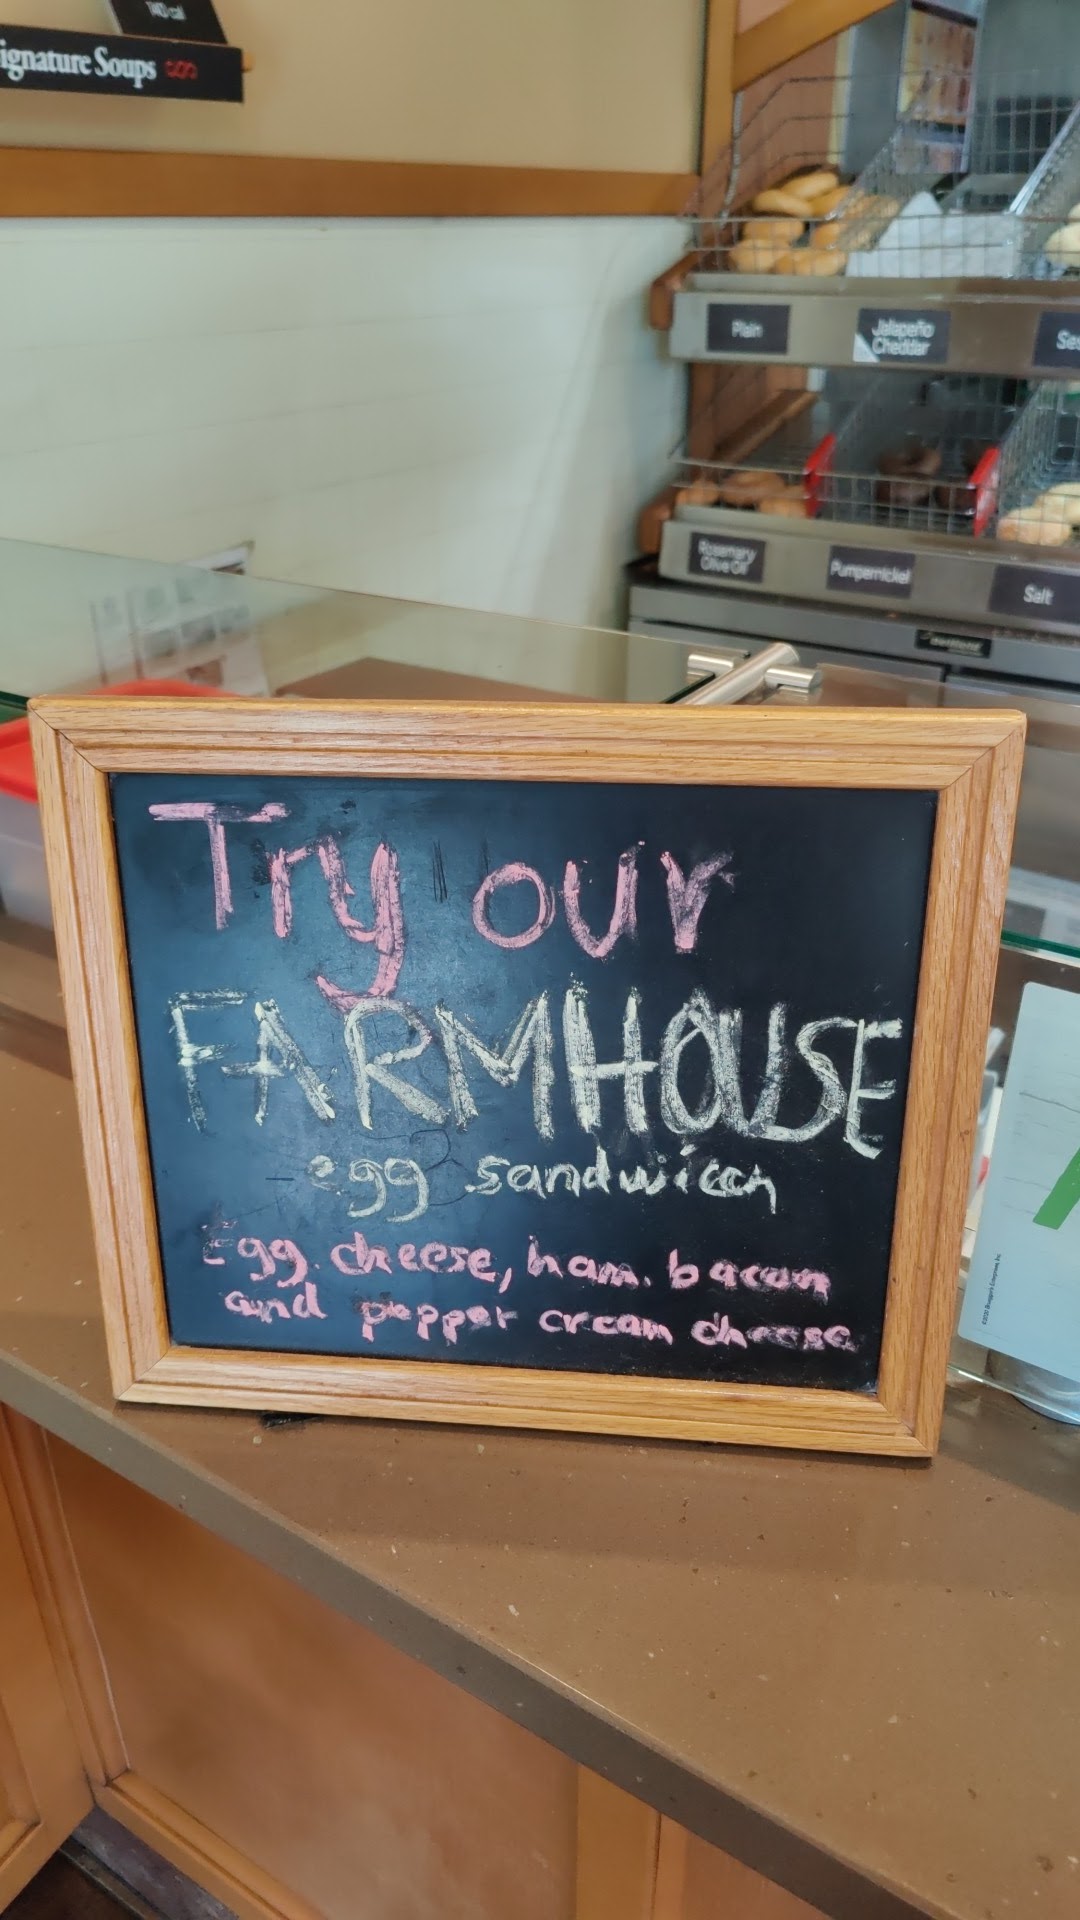 140 cal
ignature Soups
Plain
Jalapeño
Cheddar
Ses
Rosemary
Olive Oil
Pumpernickel
Salt
Try our
FARMHOUSE
egg sandwich
Egg, cheese, ham, bacon
and pepper cream cheese